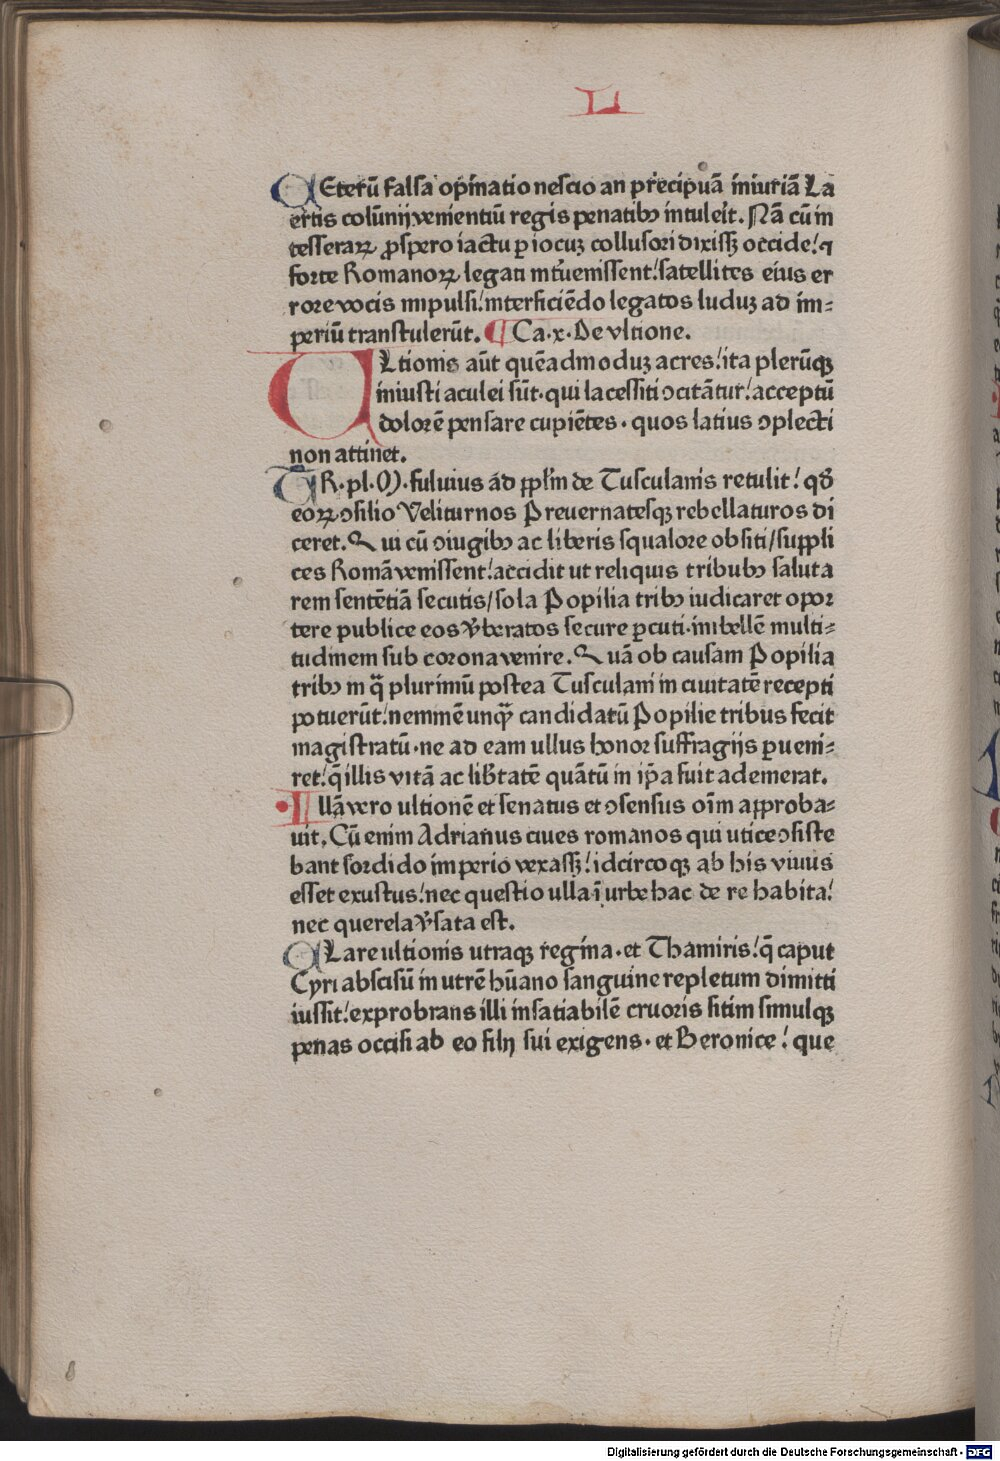 L
CEterū falsa opinatio nescio an precipuā iniuriā La
ertis colūnij venientiū regis penatibꝰ intuleit. Nā cū in
tesseraꝝ ꝓspero iactu ꝑ iocuꝫ collusori dixissꝫ occide! ⁊
forte Romanoꝝ legati int̄uenissent! satellites eius er
rore vocis impulsi! interficiēdo legatos luduꝫ ad im⸗
periū transtulerūt. ¶ Ca. x. De vltione.
ULtionis aūt quēadmoduꝫ acres! ita plerūqꝫ
iniusti aculei sūt. qui lacessiti ꝯcitātur! acceptū
dolorē pensare cupiētes. quos latius ꝯplecti
non attinet.
TR. pl. M. fuluius ad ppl̄m de Tusculanis retulit! qđ
eoꝝ ꝯsilio Veliturnos Preuernatesqꝫ rebellaturos di
ceret. Qui cū ꝯiugibꝰ ac liberis squalore obsiti/suppli
ces Romā venissent! accidit ut reliquis tribubꝰ saluta
rem sentētiā secutis/sola Popilia tribꝰ iudicaret opor
tere publice eos v̄beratos secure ꝑcuti. imbellē multi⸗
tudinem sub corona venire. Quā ob causam Popilia
tribꝰ in q̄ plurimū postea Tusculani in ciuitatē recepti
potuerūt! neminē unq̄ candidatū Popilie tribus fecit
magistratū. ne ad eam ullus honor suffragijs ꝑueni⸗
ret! q̄ illis vitā ac lib̄tatē quātū in ip̄a fuit ademerat.
Illā vero ultionē et senatus et ꝯsensus oīm approba⸗
uit. Cū enim Adrianus ciues romanos qui utice ꝯsiste
bant sordido imperio vexassꝫ! idcircoqꝫ ab his viuus
esset exustus! nec questio ulla ī urbe hac de re habita!
nec querela v̄sata est.
CLare ultionis utraqꝫ regina. et Thamiris! q̄ caput
Cyri abscisū in utrē hūano sanguine repletum dimitti
iussit! exprobrans illi insatiabilē cruoris sitim simulqꝫ
penas occisi ab eo filij sui exigens. et Beronice! que
Digitalisierung gefördert durch die Deutsche Forschungsgemeinschaft - DFG